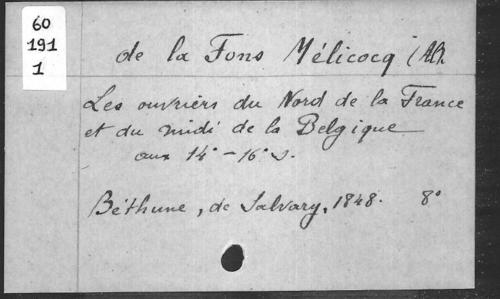 60
191
1
de la Fons Mélicocq
Les ouvriers du Nord de la France
et du midi de la Belgique
aux 14e - 16e s.
Béthune, de Salvary, 1848. 8°